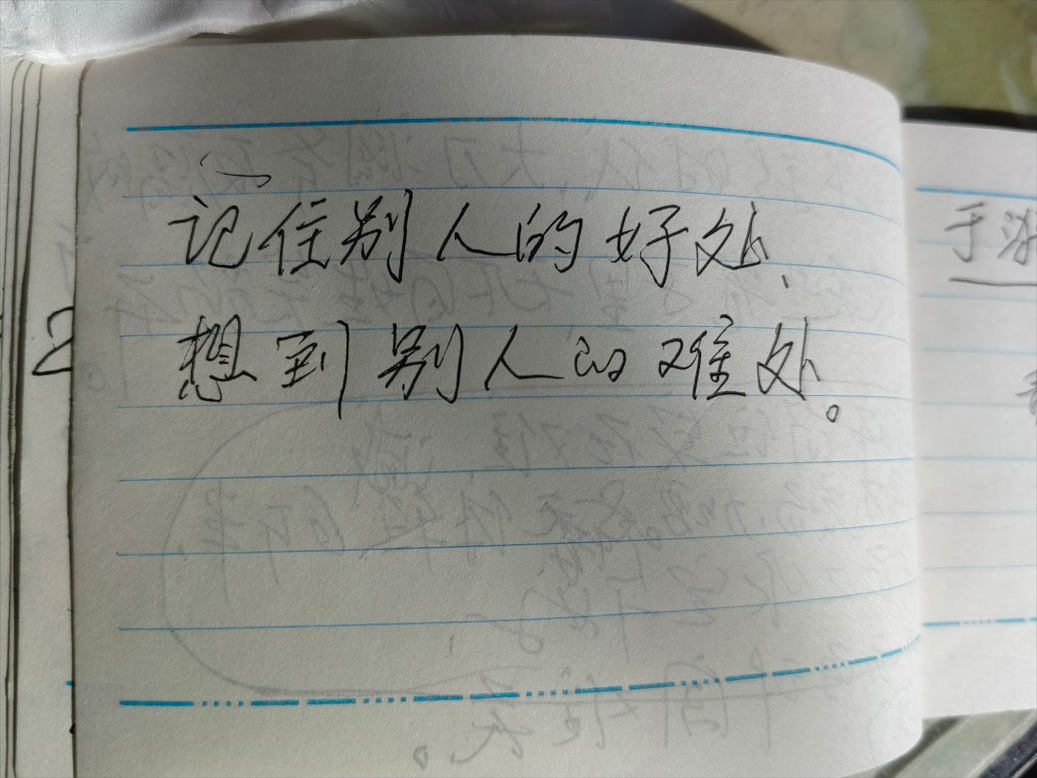 记住别人的好处、
想到别人的难处。
2
于